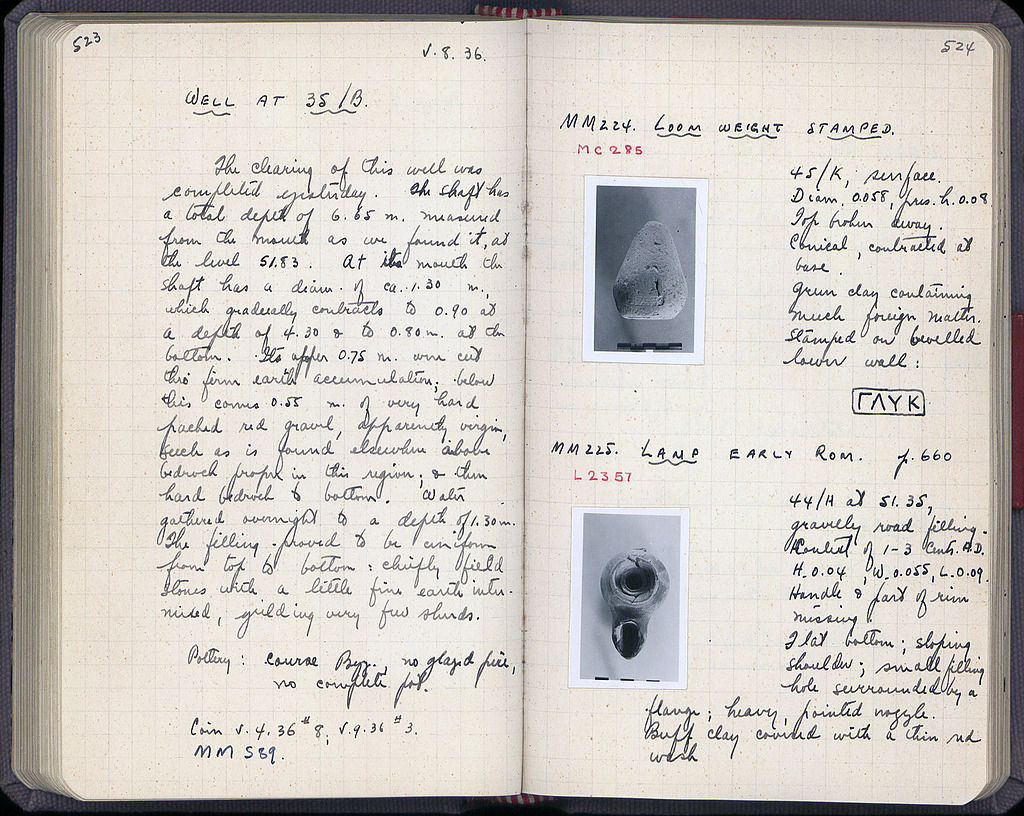 523
V.8.36.
WELL AT 35/B.
The clearing of this well was
completed yesterday. The shaft has
a total depth of 6.65 m. measured
from the mouth as we found it, at
the level 51.83. At its mouth the
shaft has a diam. of ca. 1.30 m.,
which gradually contracts to 0.90 at
a depth of 4.30 & to 0.80 m. at the
bottom. Its upper 0.75 m. were cut
thro' firm earth accumulation; below
this comes 0.55 m. of very hard
packed red gravel, apparently virgin,
such as is found elsewhere above
bedrock proper in this region; & then
hard bedrock to bottom. Water
gathered overnight to a depth of 1.30 m.
The filling proved to be uniform
from top to bottom: chiefly field
stones with a little fine earth inter-
mixed, yielding very few sherds.
Pottery: coarse Byz., no glazed piece,
no complete pot.
Coin V.4.36 #8, V.9.36 #3.
MM 589.
524
MM224. LOOM WEIGHT STAMPED.
MC 285
45/K, surface.
Diam. 0.058, pres. h. 0.08
Top broken away.
Conical, contracted at
base.
Green clay containing
much foreign matter.
Stamped on bevelled
lower wall:
ΓΛΥΚ
MM225. LAMP EARLY ROM. p. 660
L 2357
44/H at 51.35,
gravelly road filling.
Context of 1-3 Cents. A.D.
H. 0.04, W. 0.055, L. 0.09.
Handle & part of rim
missing.
Flat bottom; sloping
shoulder; small filling
hole surrounded by a
flange; heavy, pointed nozzle.
Buff clay covered with a thin red
wash